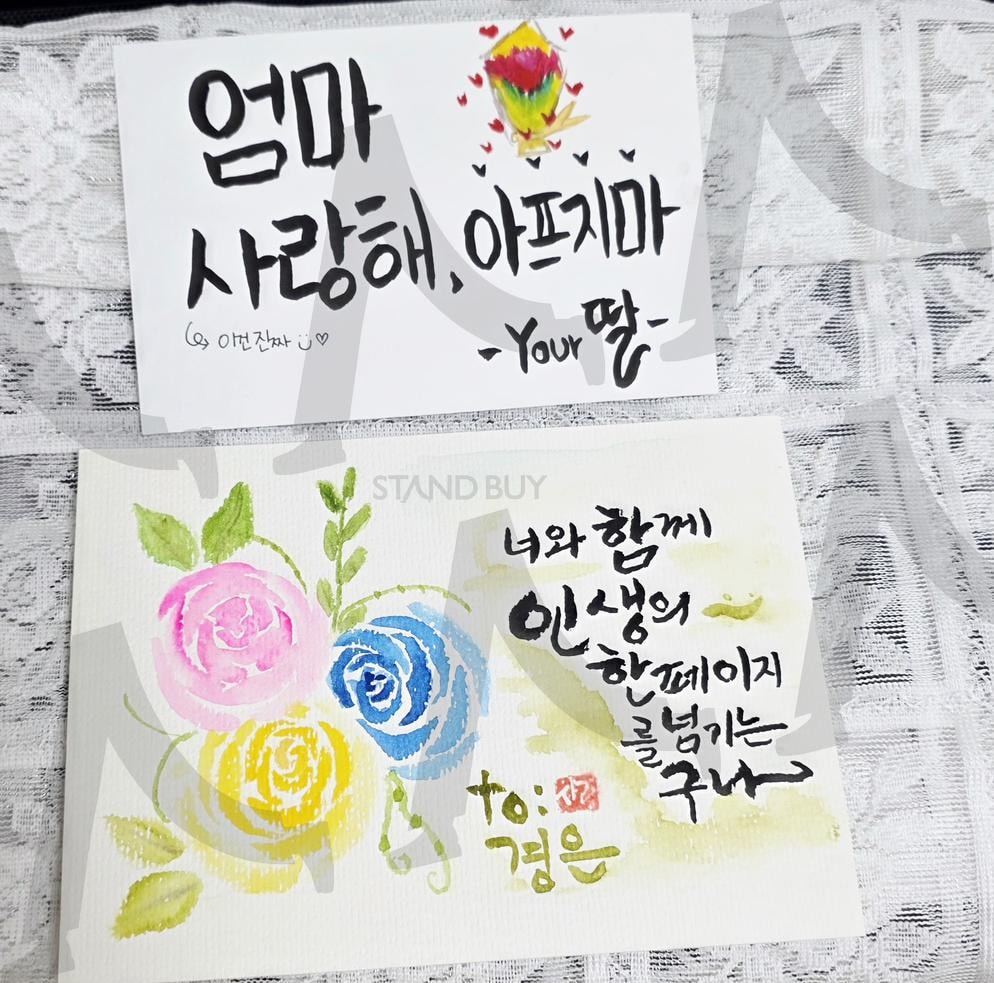 엄마
사랑해, 아프지마
↳ 이건 진짜 ♡
- Your 딸 -
STANDBUY
너와 함께
인생의
한 페이지
를 넘기는
구나
to:
경은